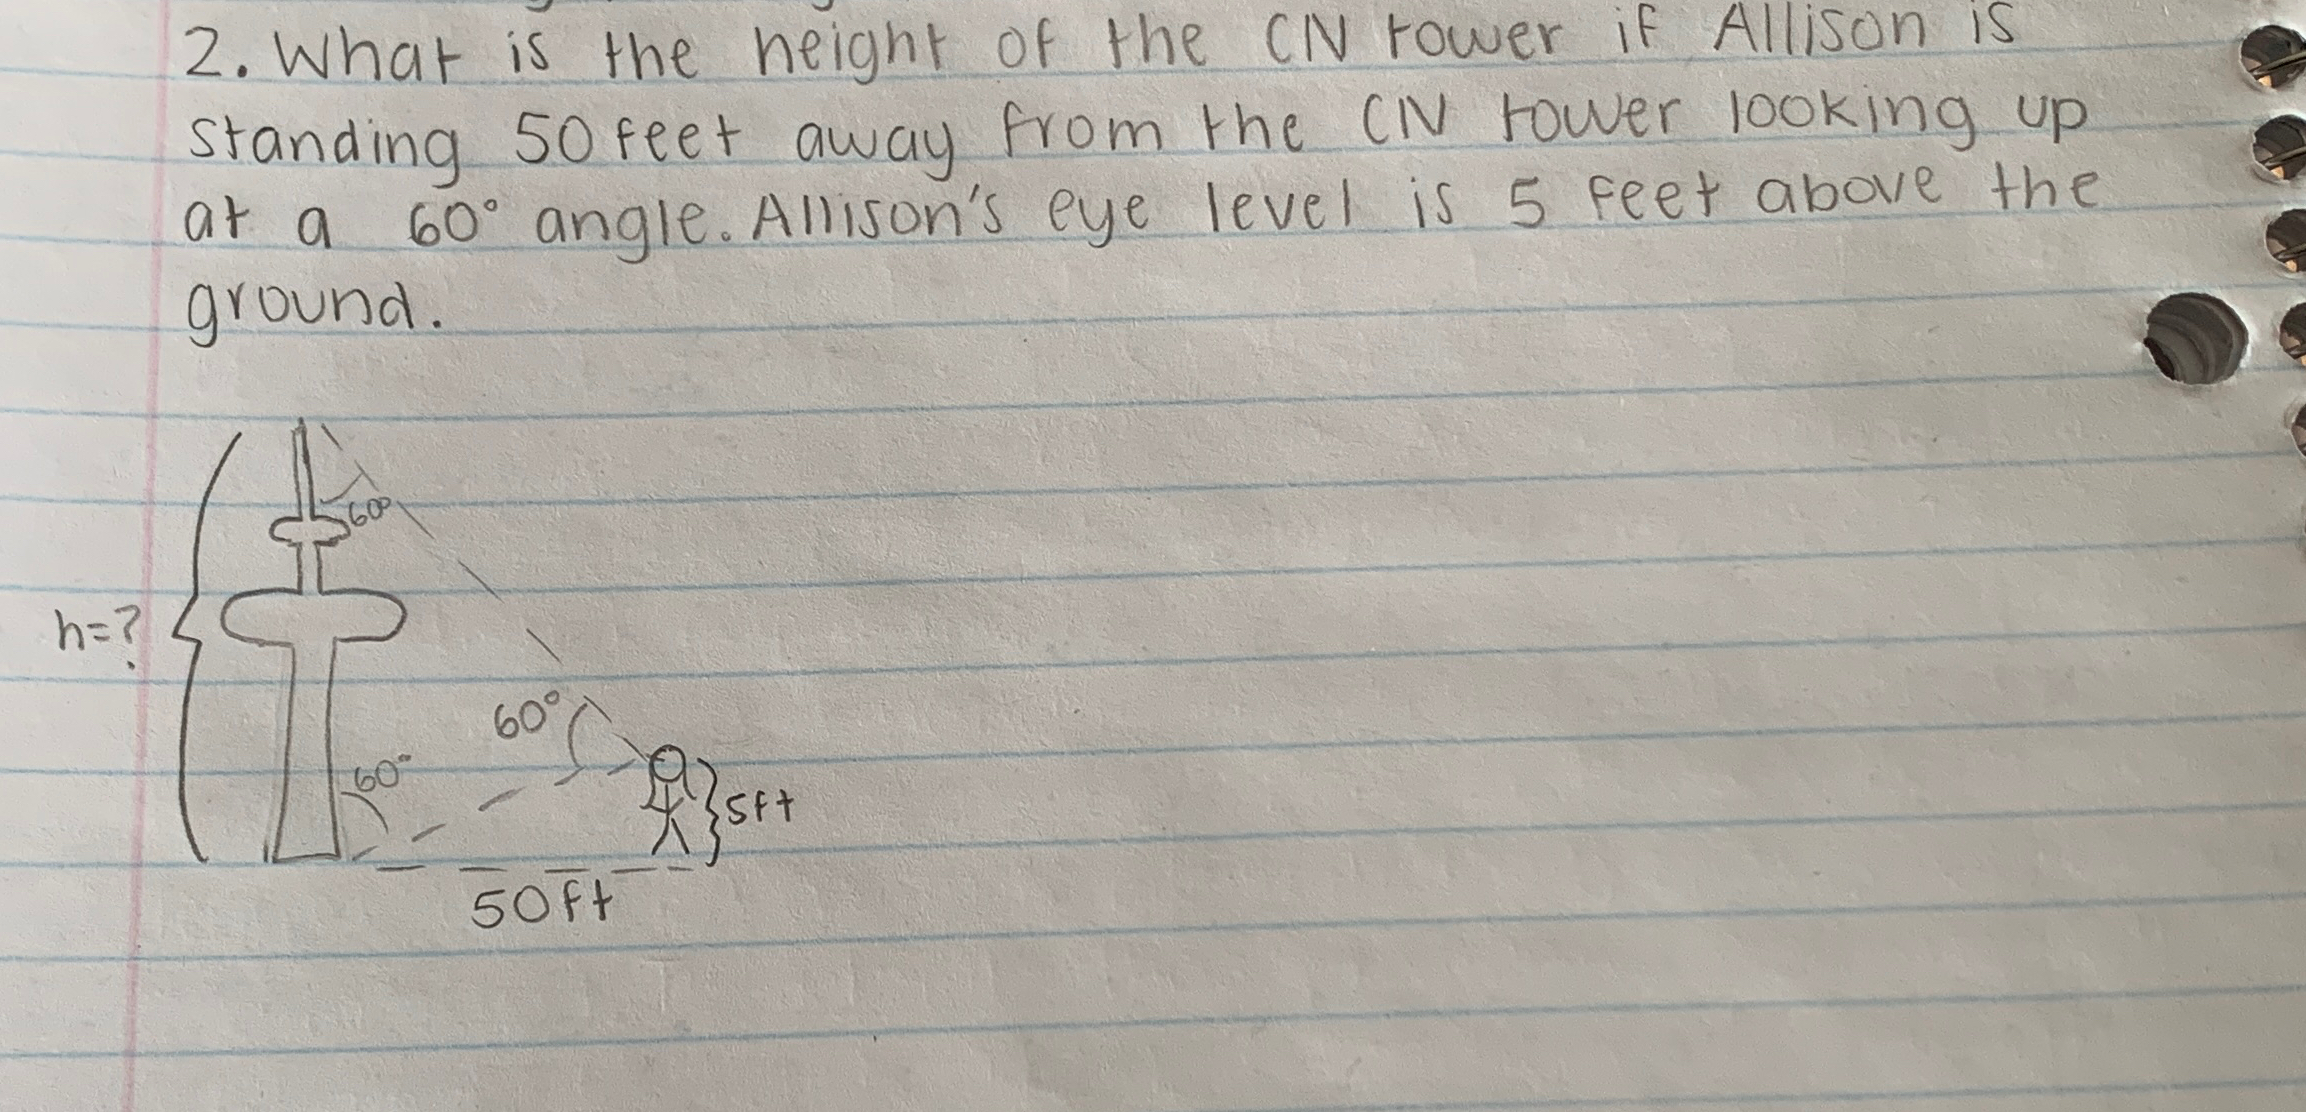 2. What is the height of the CN tower if Allison is
standing 50 feet away from the CN tower looking up
at a 60° angle. Allison's eye level is 5 feet above the
ground.
60°
h=?
60°
60°
5ft
50ft